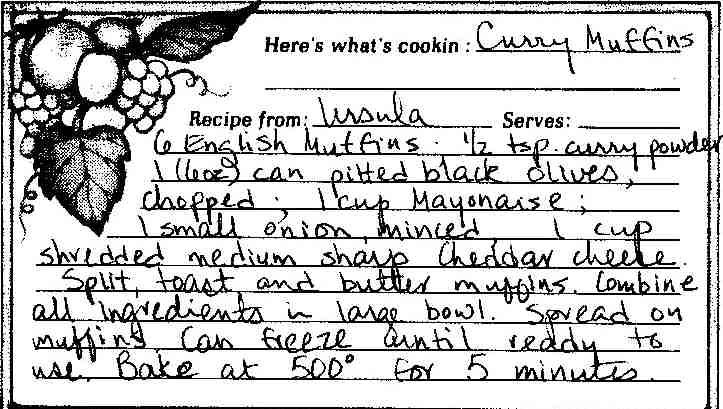 Here's what's cookin: Curry Muffins
Recipe from: Ursula Serves:
6 English Muffins · 1/2 tsp. curry powder
1 (6oz) can pitted black olives,
chopped; 1 cup Mayonaise;
1 small onion, minced 1 cup
shredded medium sharp Cheddar cheese.
Split, toast and butter muffins. Combine
all ingredients in large bowl. Spread on
muffins. Can freeze until ready to
use. Bake at 500° for 5 minutes.